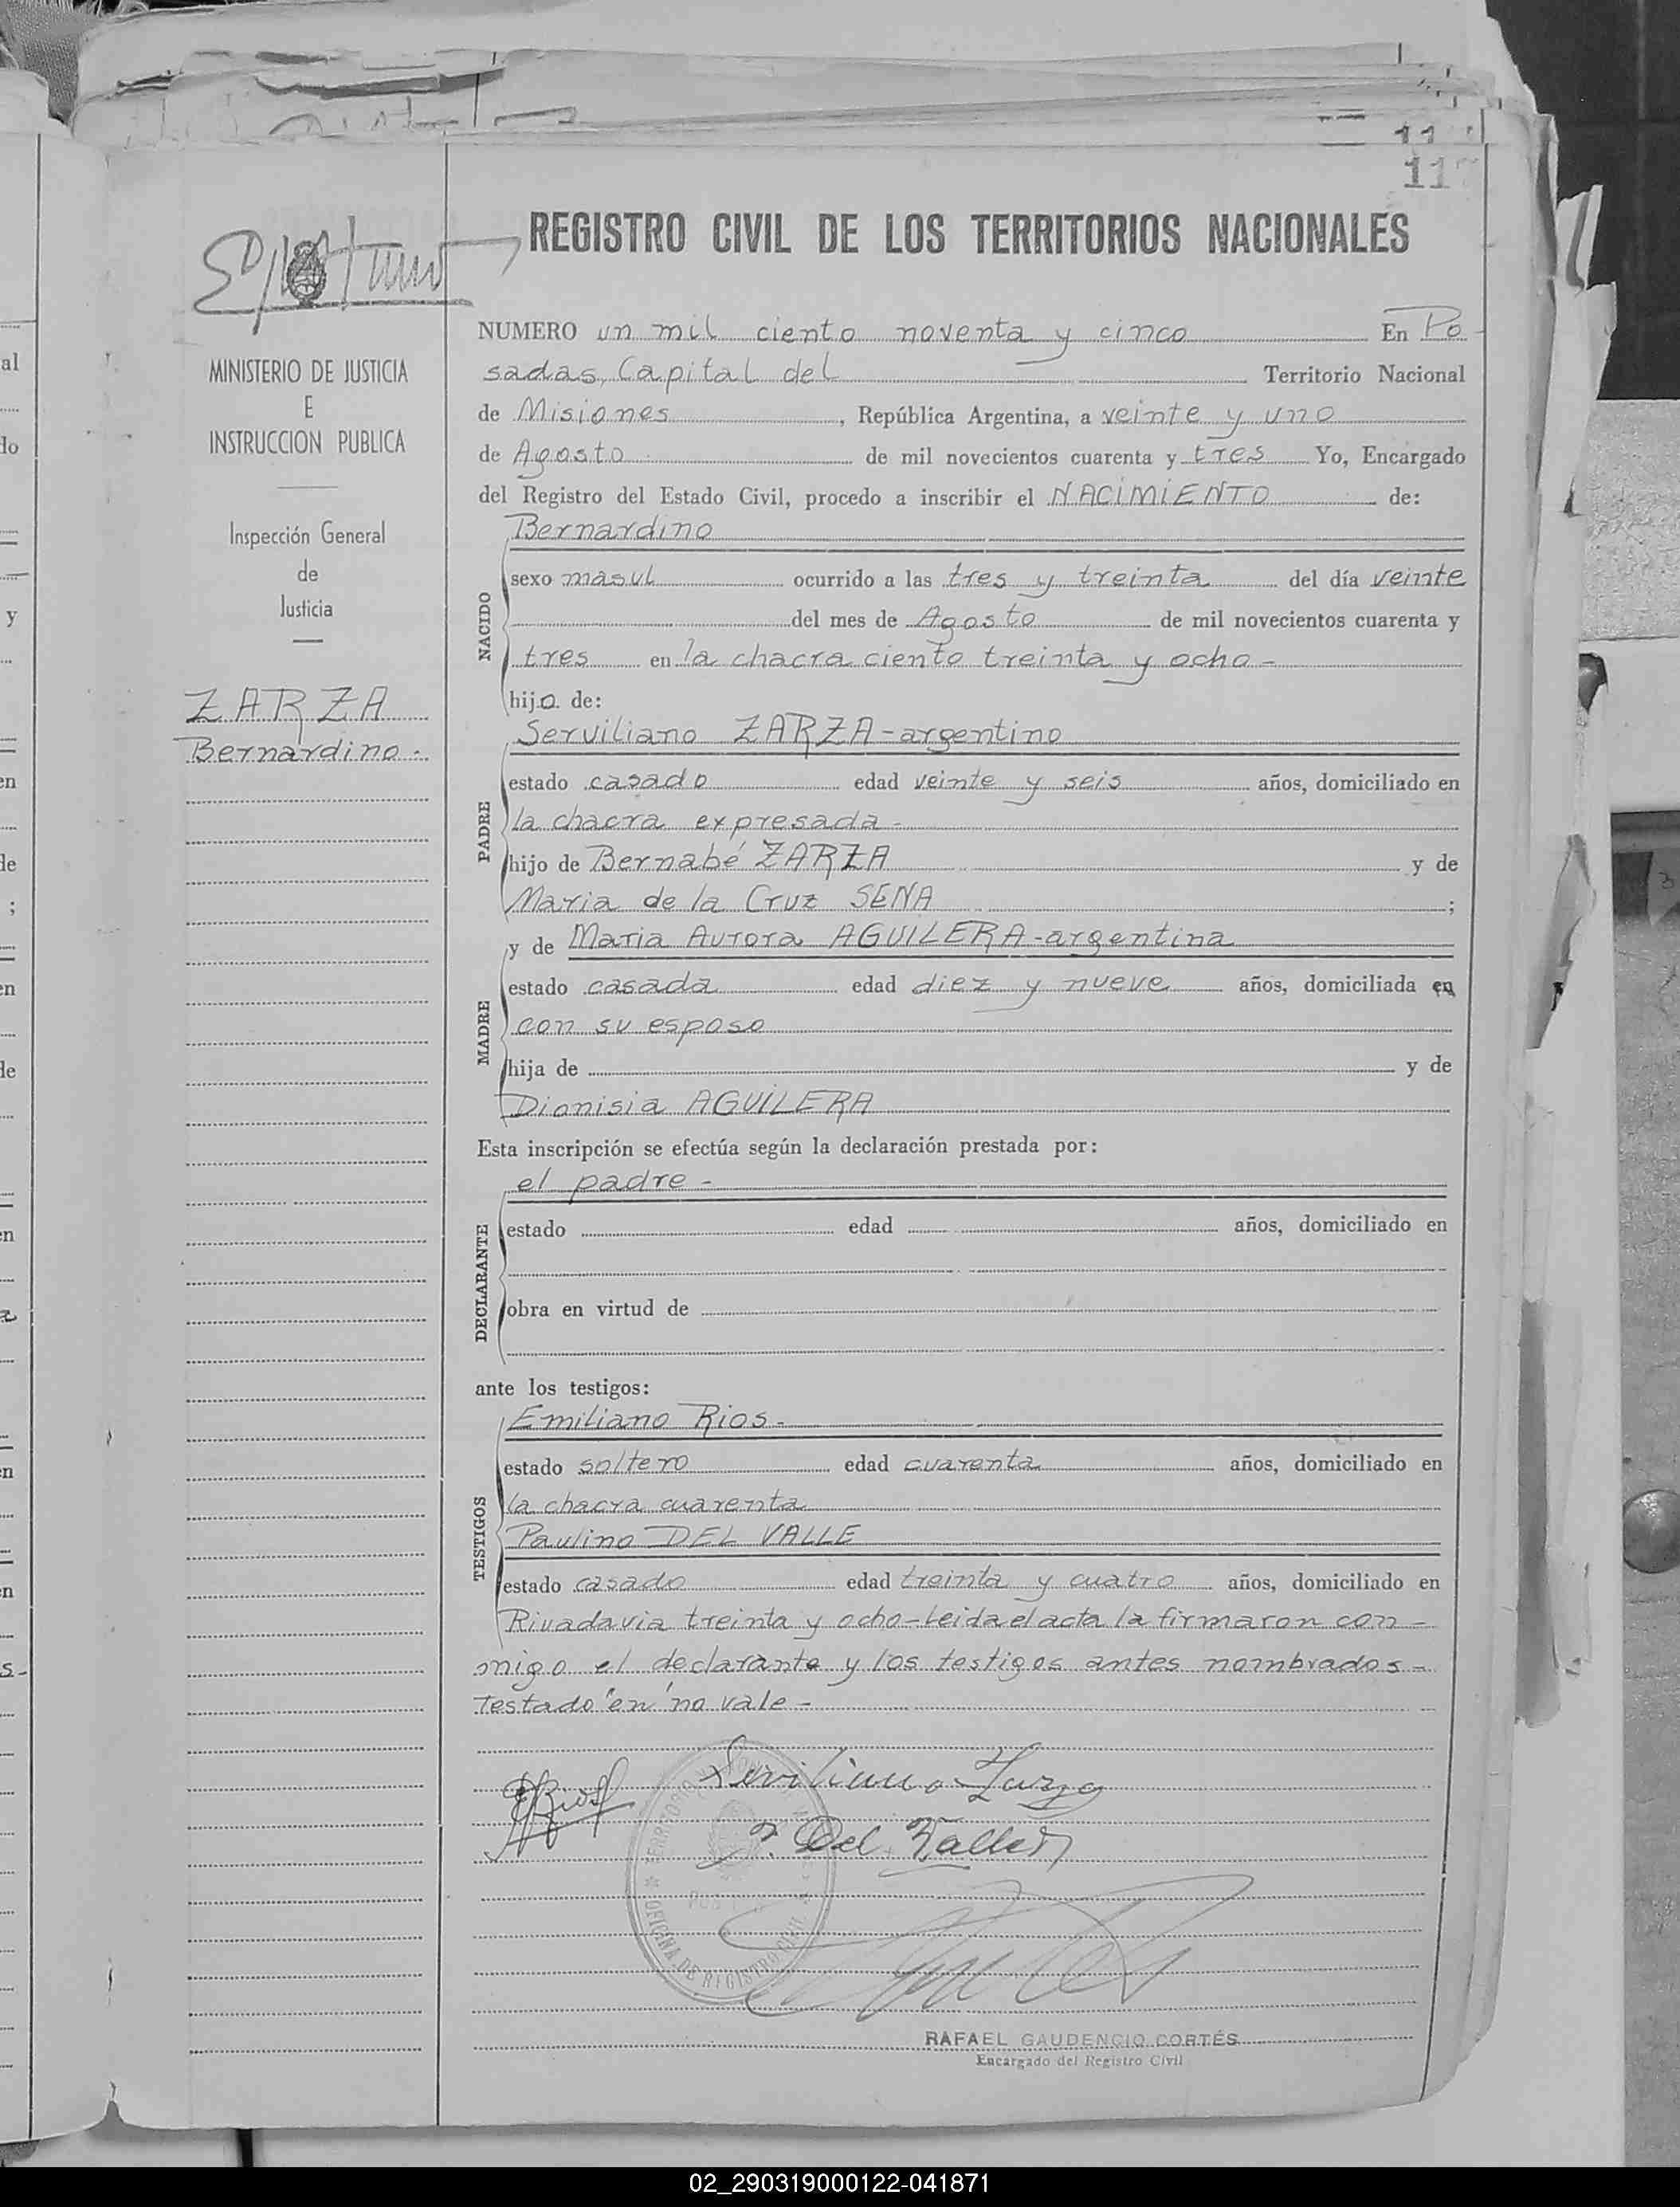 REGISTRO CIVIL DE LOS TERRITORIOS NACIONALES
MINISTERIO DE JUSTICIA
E
INSTRUCCION PUBLICA
Inspección General
de
Justicia
ZARZA
Bernardino -
NUMERO un mil ciento noventa y cinco En Po-
sadas, Capital del Territorio Nacional
de Misiones, República Argentina, a veinte y uno
de Agosto de mil novecientos cuarenta y tres Yo, Encargado
del Registro del Estado Civil, procedo a inscribir el NACIMIENTO de:
NACIDO
Bernardino
sexo masul ocurrido a las tres y treinta del día veinte
del mes de Agosto de mil novecientos cuarenta y
tres en la chacra ciento treinta y ocho -
hijo de:
PADRE
Serviliano ZARZA - argentino
estado casado edad veinte y seis años, domiciliado en
la chacra expresada -
hijo de Bernabé ZARZA y de
Maria de la Cruz SENA ;
MADRE
y de Maria Aurora AGUILERA - argentina
estado casada edad diez y nueve años, domiciliada en
con su esposo
hija de y de
Dionisia AGUILERA
Esta inscripción se efectúa según la declaración prestada por:
DECLARANTE
el padre -
estado edad años, domiciliado en
obra en virtud de
ante los testigos:
TESTIGOS
Emiliano Rios -
estado soltero edad cuarenta años, domiciliado en
la chacra cuarenta
Paulino DEL VALLE
estado casado edad treinta y cuatro años, domiciliado en
Rivadavia treinta y ocho - Leida el acta la firmaron con -
migo el declarante y los testigos antes nombrados -
Testado "en" no vale -
Serviliano Zarza
ERios
P. Del Valle
OFICINA DE REGISTRO CIVIL
RAFAEL GAUDENCIO CORTÉS
Encargado del Registro Civil
02_290319000122-041871